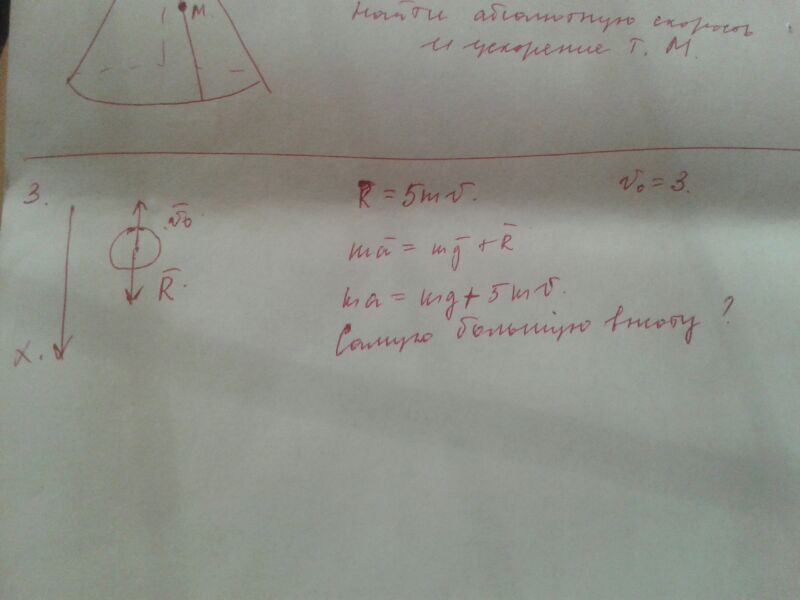 M.
Найти абсолютную скорость
и ускорение т. М.
3.
v̄₀
R̄.
x.
R = 5mv.
v₀ = 3.
mā = mḡ + R̄
ma = mg + 5mv.
Самую большую высоту ?